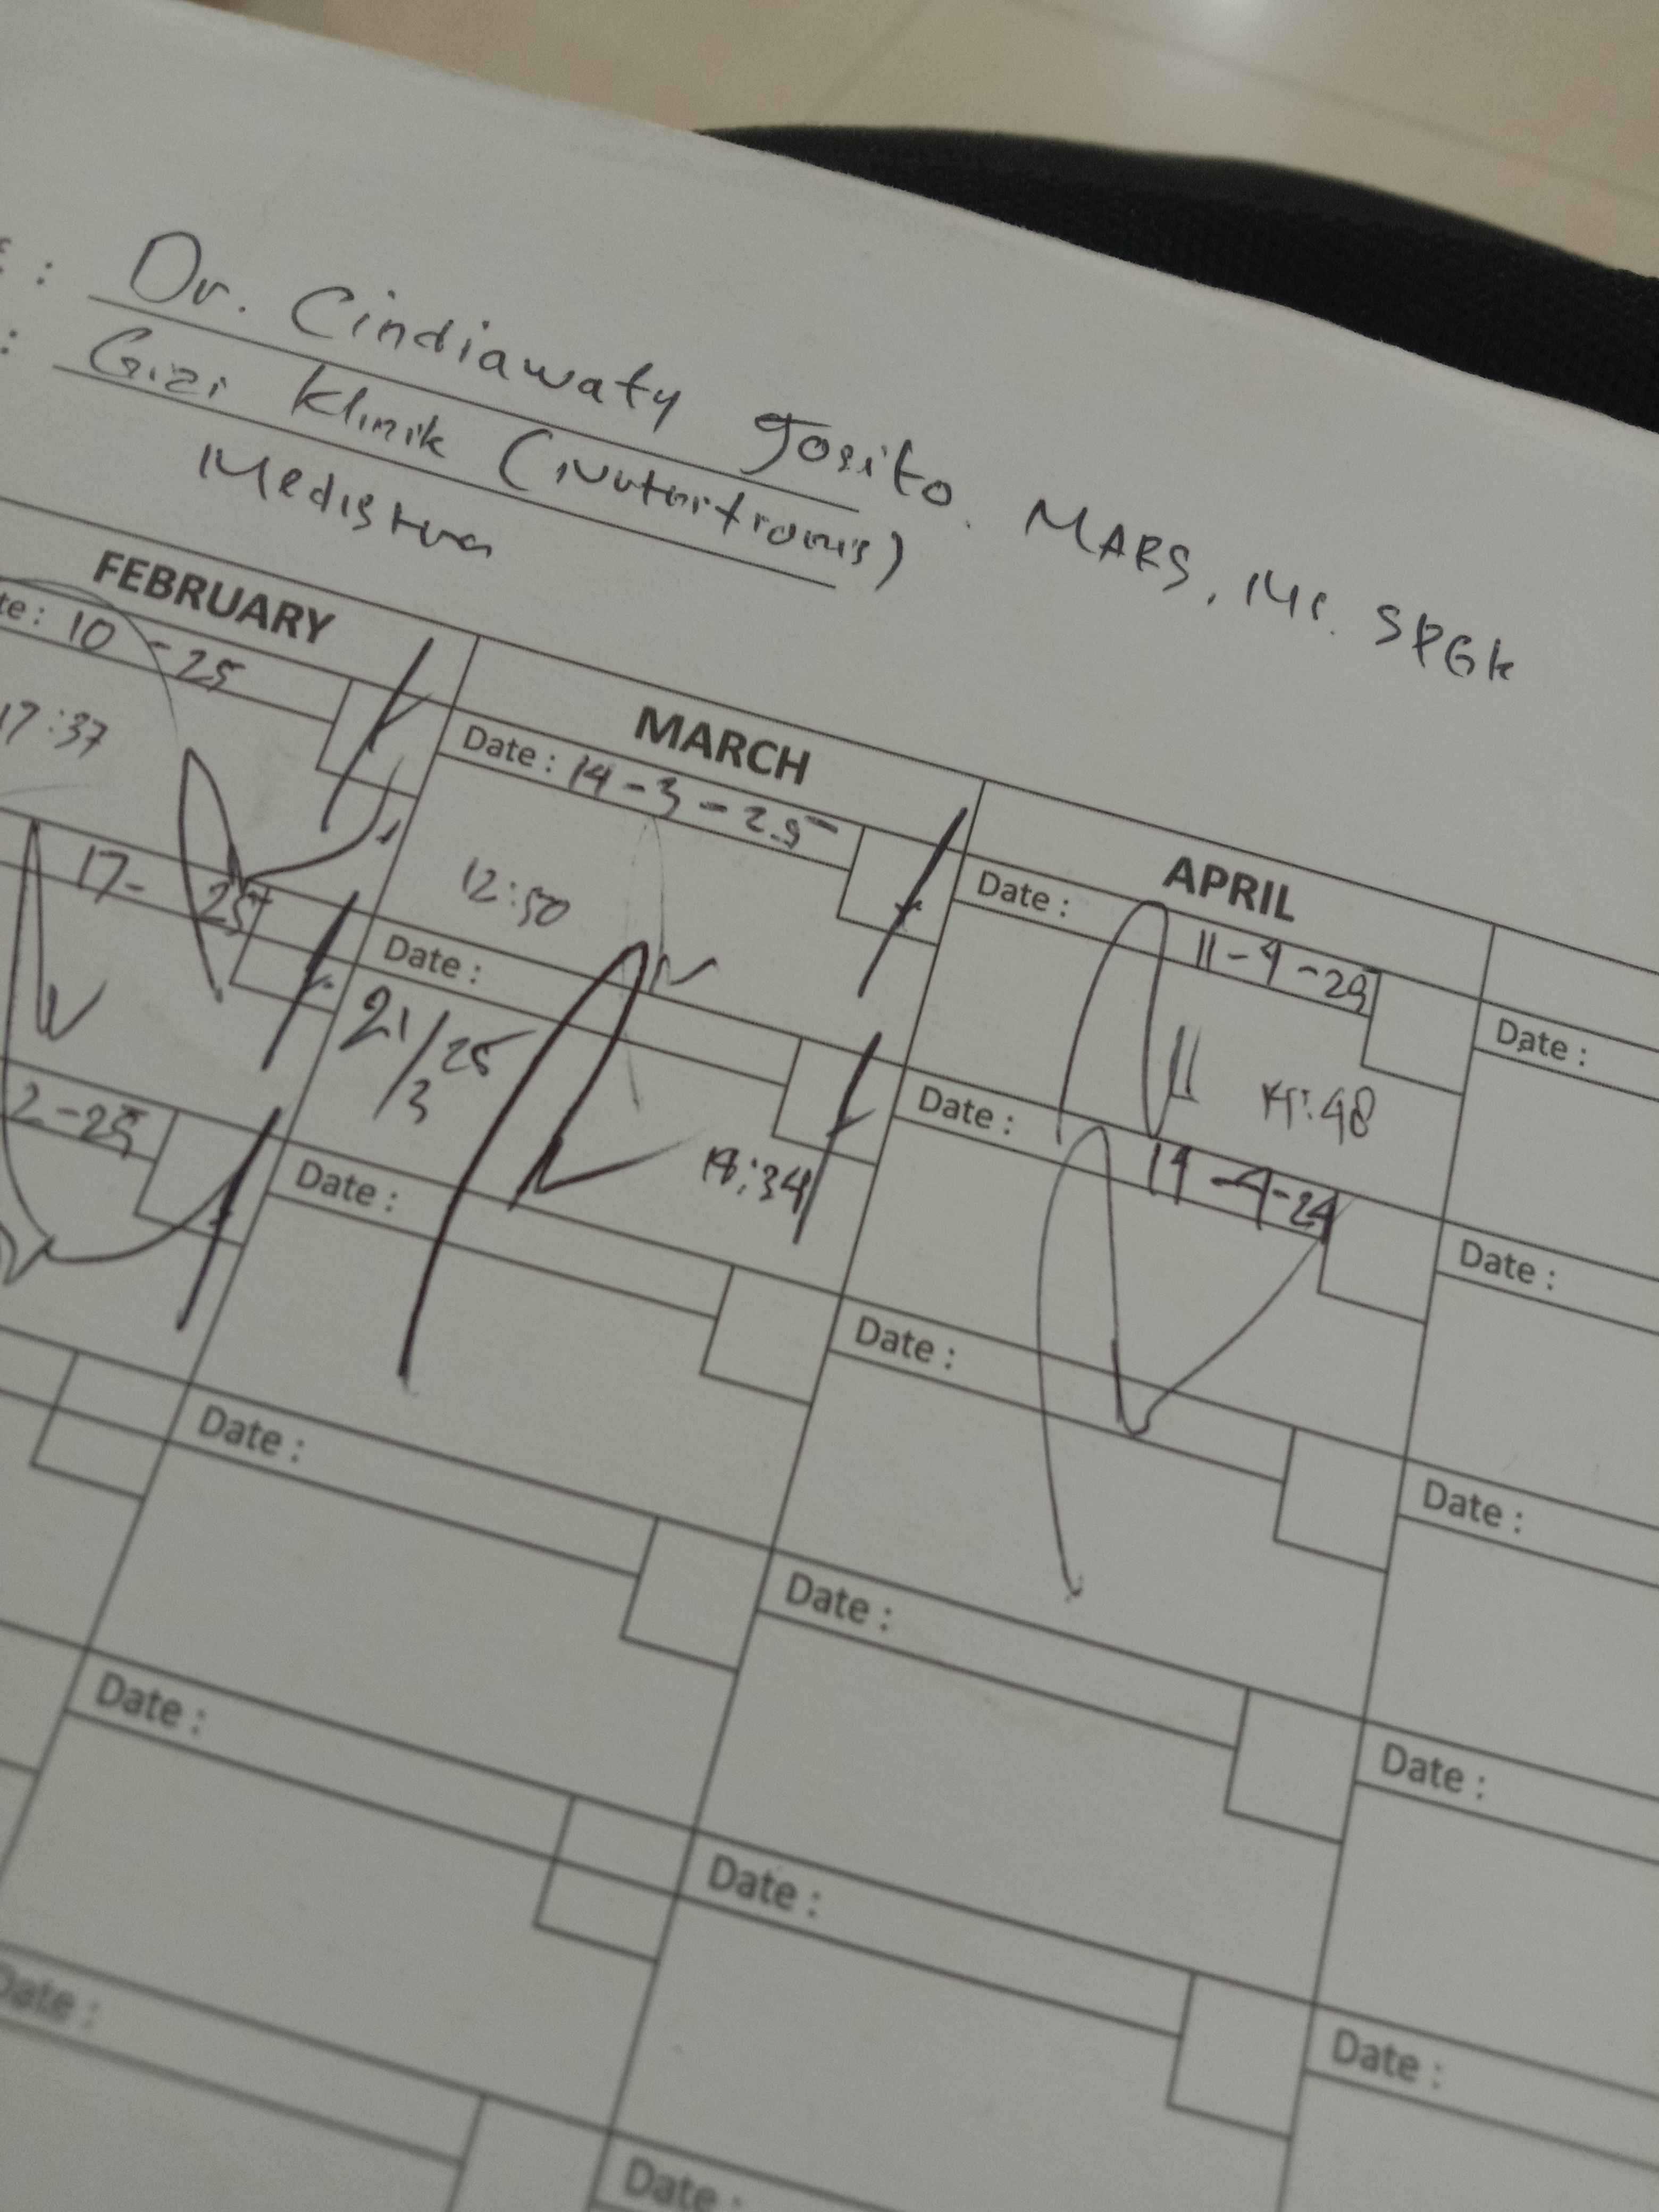 : Dr. Cindiawaty Josito. MARS, Ms. SPGK
: Gizi Klinik
Medistra
FEBRUARY
MARCH
APRIL
te: 10 - 25
17:37
Date : 14-3-25
12:50
Date : 11-4-25
Date :
17- 25
Date :
21/3 25
18:34
Date : 14-4-25
Date :
2-25
Date :
Date :
Date :
Date :
Date :
Date :
Date :
Date :
Date :
Date :
Date :
Date :